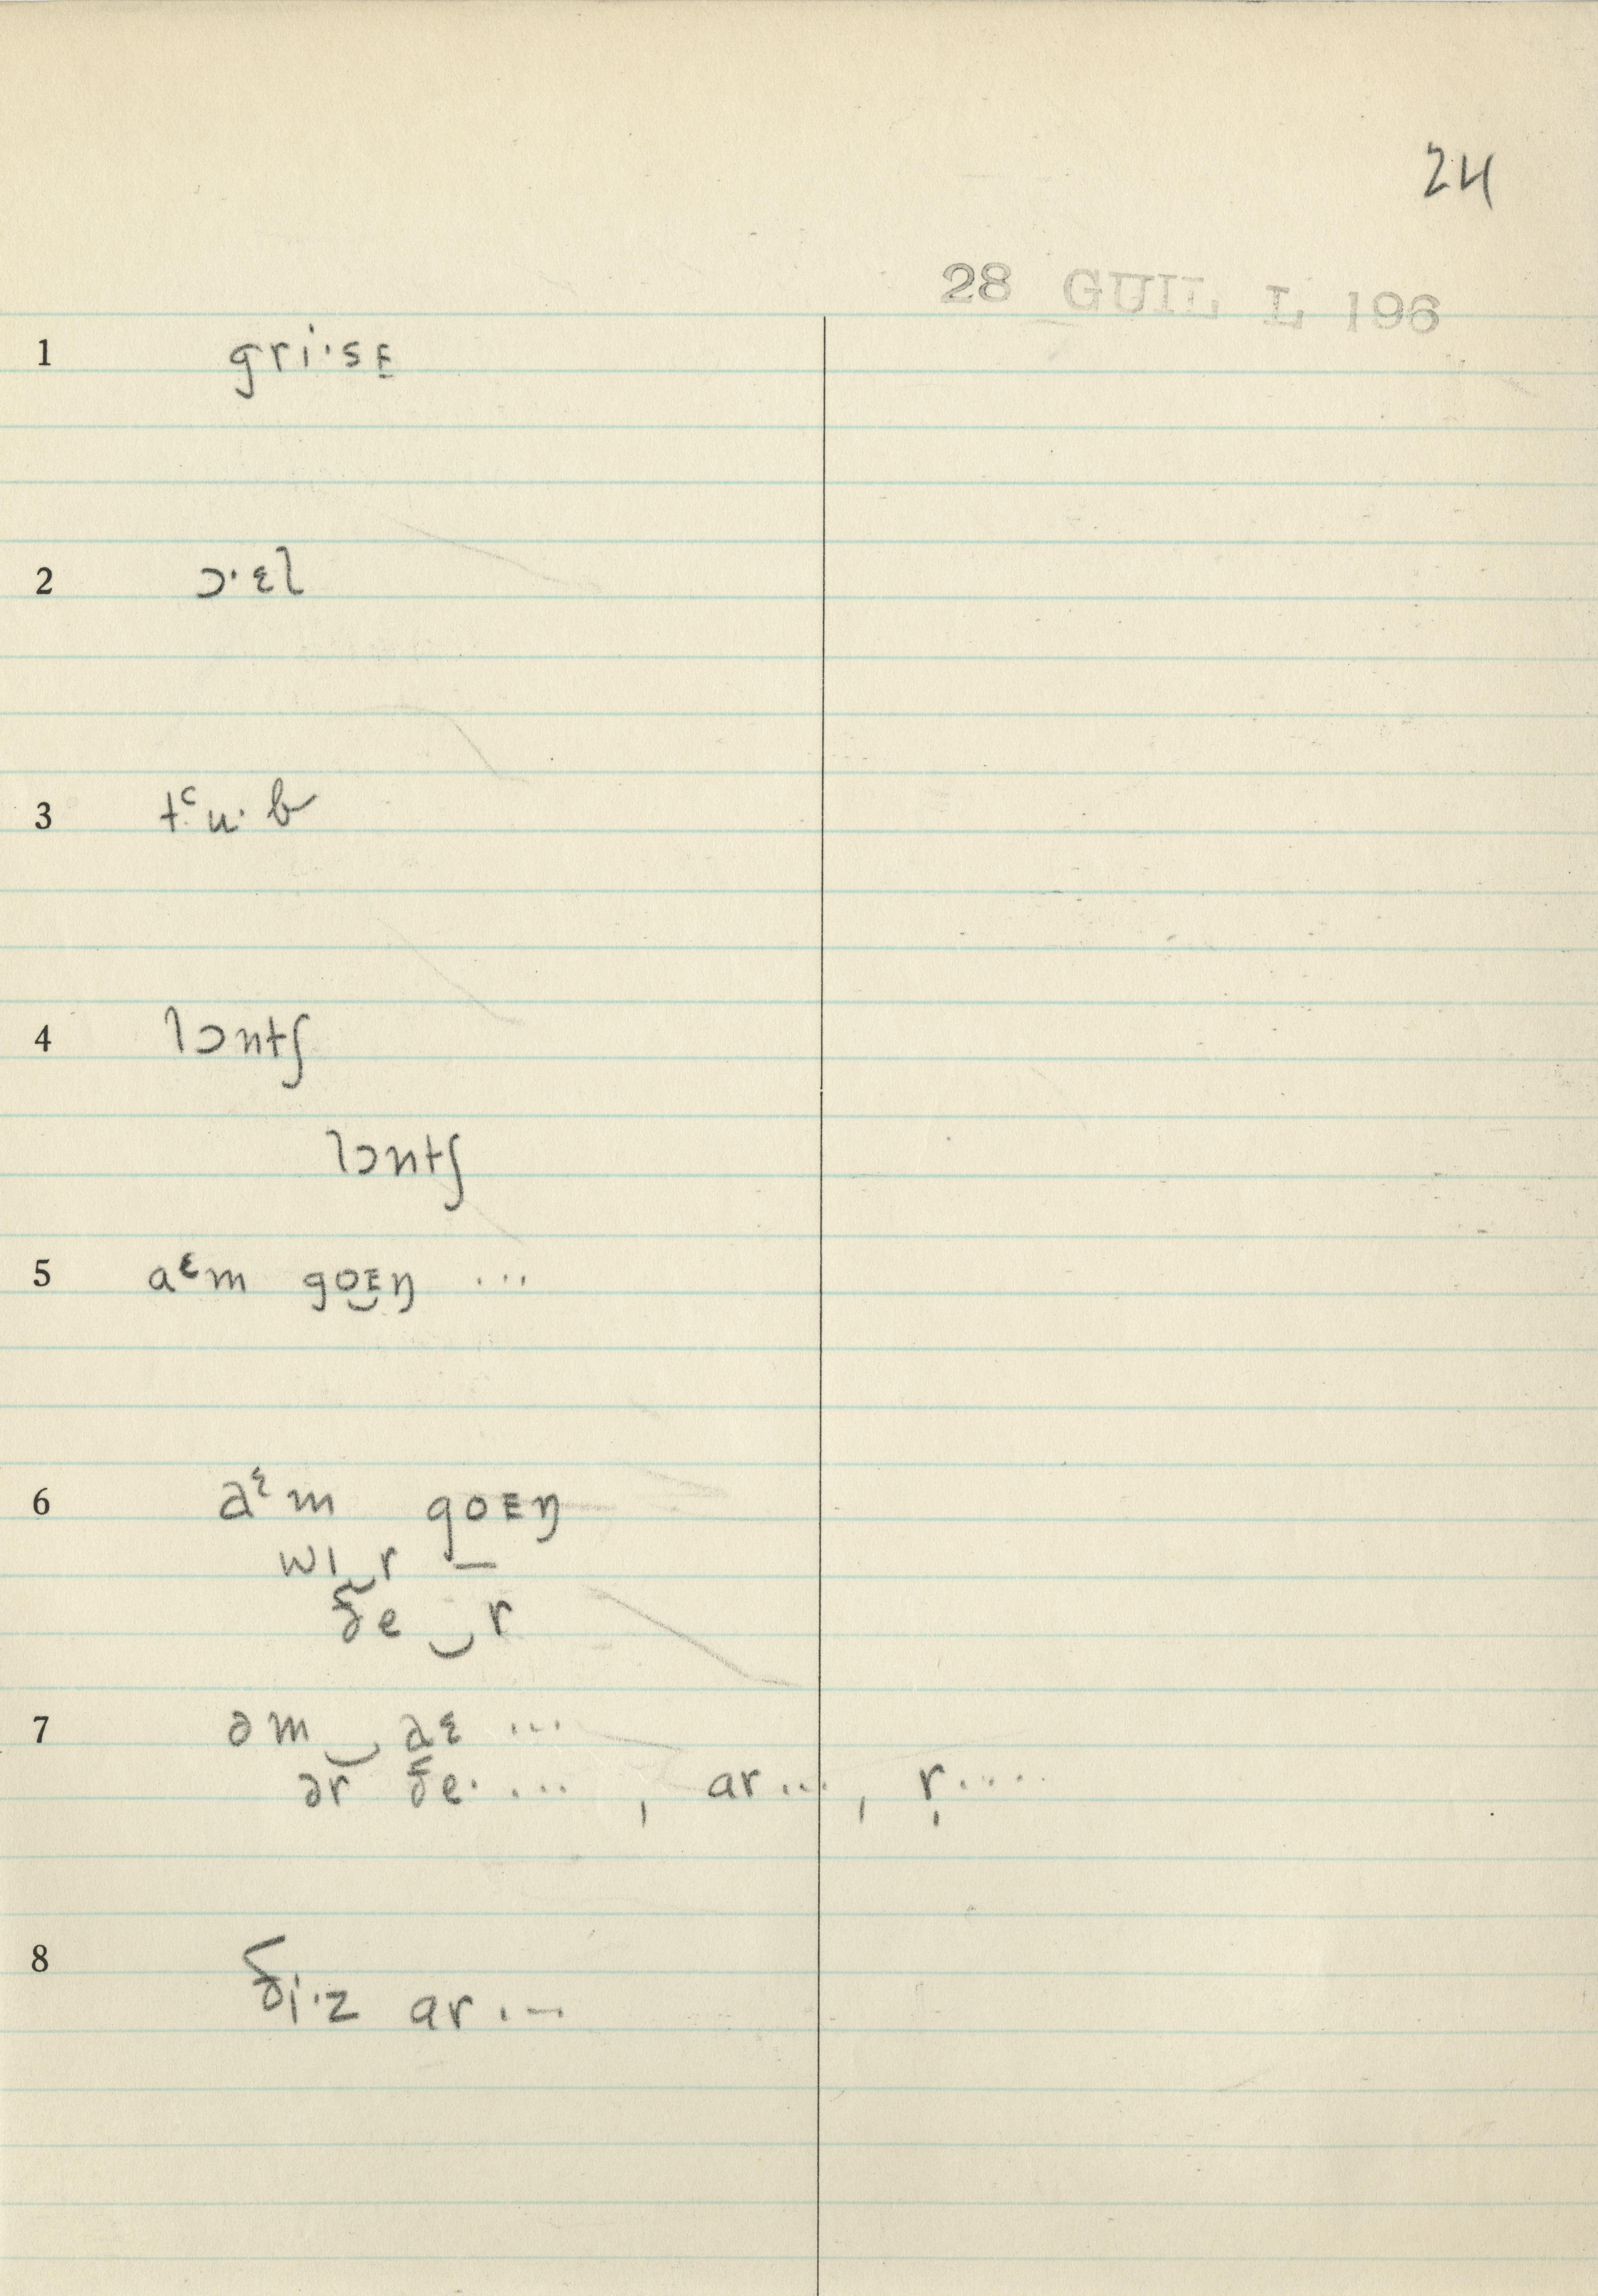 24
28 GUIL L 196
1 gri·sᴇ̱
2 ɔ·ɛl
3 tᶜu·b
4 lɔntʃ
lɔntʃ
5 aᵋm goᴇŋ ...
6 aᵋm goᴇŋ
wɪ‿r —
ðe‿r
7 əm‿aɛ ...
ər ðe· ... , ar ... , r̩ ....
8 ði·z ar ...